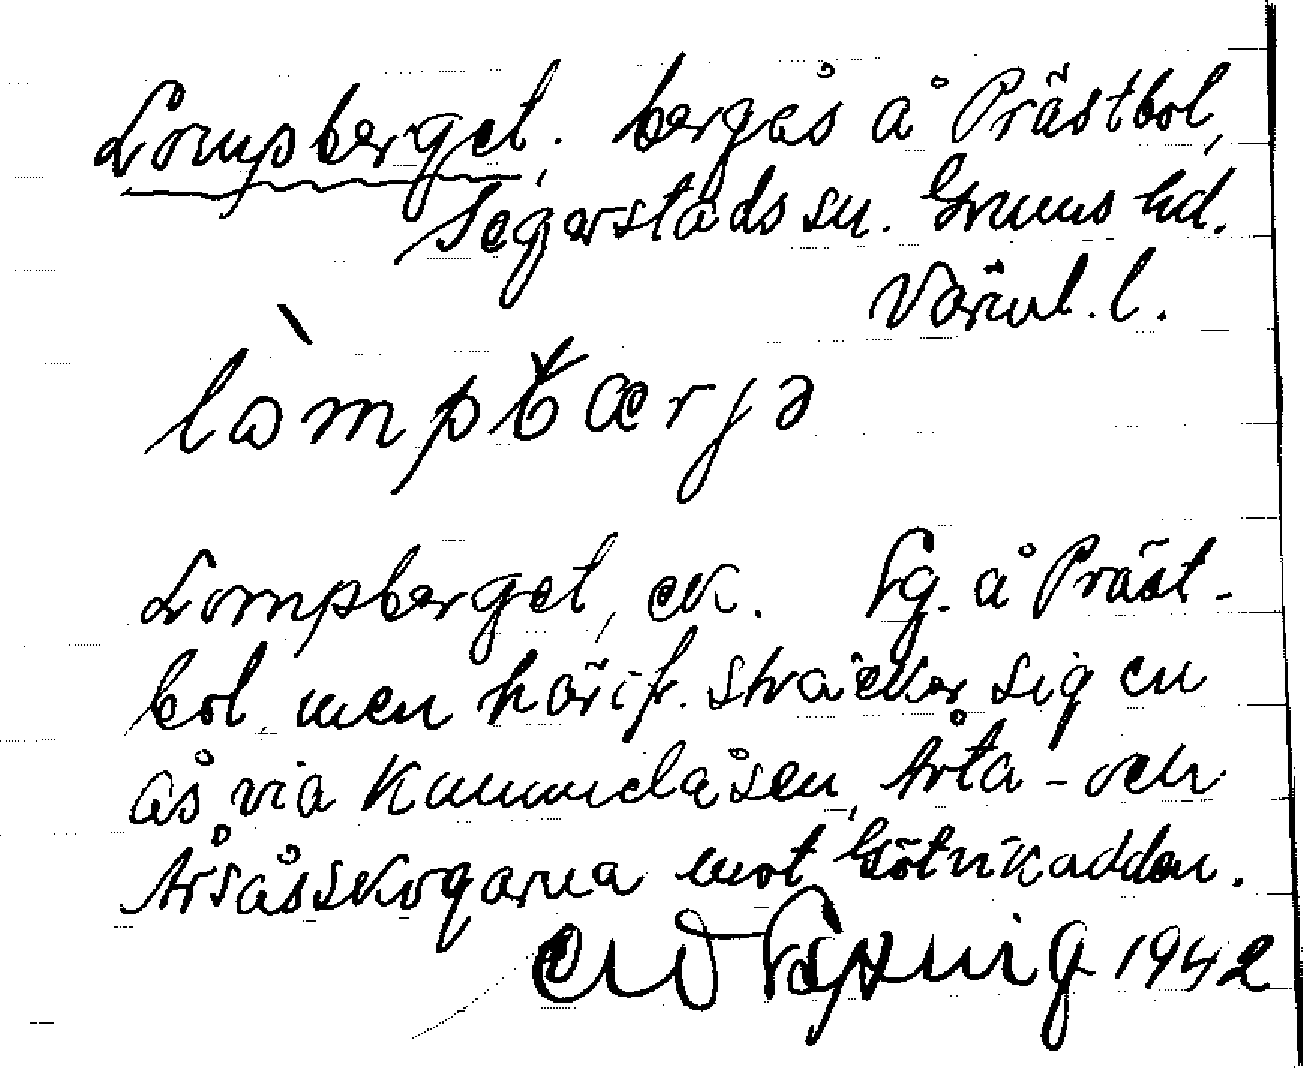 Lompberget. bergås å Prästbol,
Segerstads sn. Grums hd.
Värml. l.
låmpbærjə
Lompberget, ek. Lg. å Präst-
bol, men härifr. sträcker sig en
ås via Kummelåsen, Årta- och
Årsåsskogarna mot Götnikadden.
1942